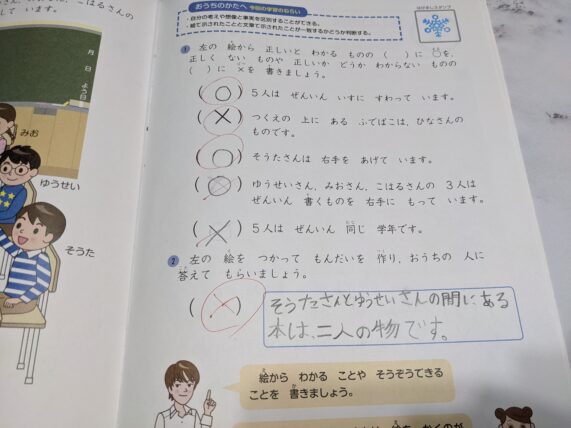 こはるさんの
して います。
月
日
よう日
みお
ゆうせい
そうた
おうちのかたへ 今回の学習のねらい
・自分の考えや想像と事実を区別することができる。
・絵で示されたことと文章で示されたことが一致するかどうか判断する。
1 左の 絵から 正しいと わかる ものの ( )に ○を、
正しく ない ものや 正しいか どうか わからない ものの
( )に ×を 書きましょう。
(○) 5人は ぜんいん いすに すわって います。
(×) つくえの 上に ある ふでばこは、ひなさんの
ものです。
(○) そうたさんは 右手を あげて います。
ゆうせいさん、みおさん、こはるさんの 3人は
ぜんいん 書くものを 右手に もって います。
(×) 5人は ぜんいん 同じ 学年です。
2 左の 絵を つかって もんだいを 作り、おうちの 人に
答えて もらいましょう。
(×) そうたさんとゆうせいさんの間にある
本は、二人の物です。
絵から わかる ことや そうぞうできる
ことを 書きましょう。